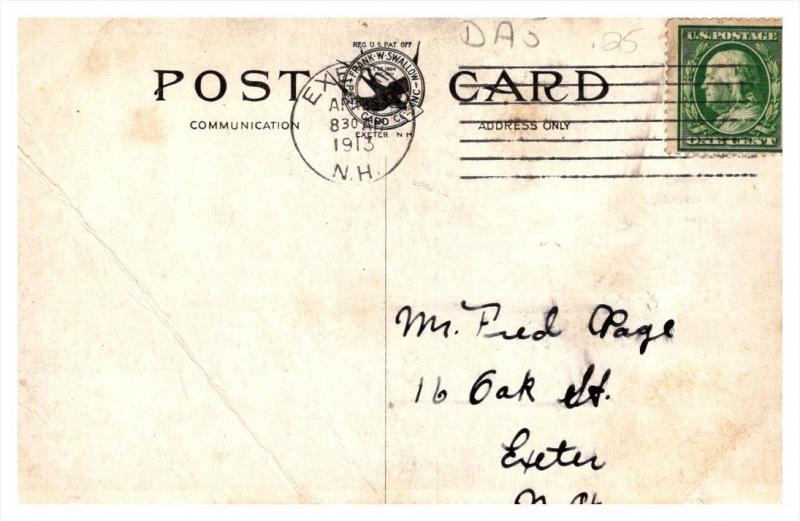 DAS .25
U.S.POSTAGE
ONE CENT
POST CARD
COMMUNICATION
ADDRESS ONLY
REG U.S. PAT OFF
FRANK·W·SWALLOW
CARD CO INC
EXETER N H
830 AM
1913
N.H.
Mr. Fred Page
16 Oak St.
Exeter
N.H.